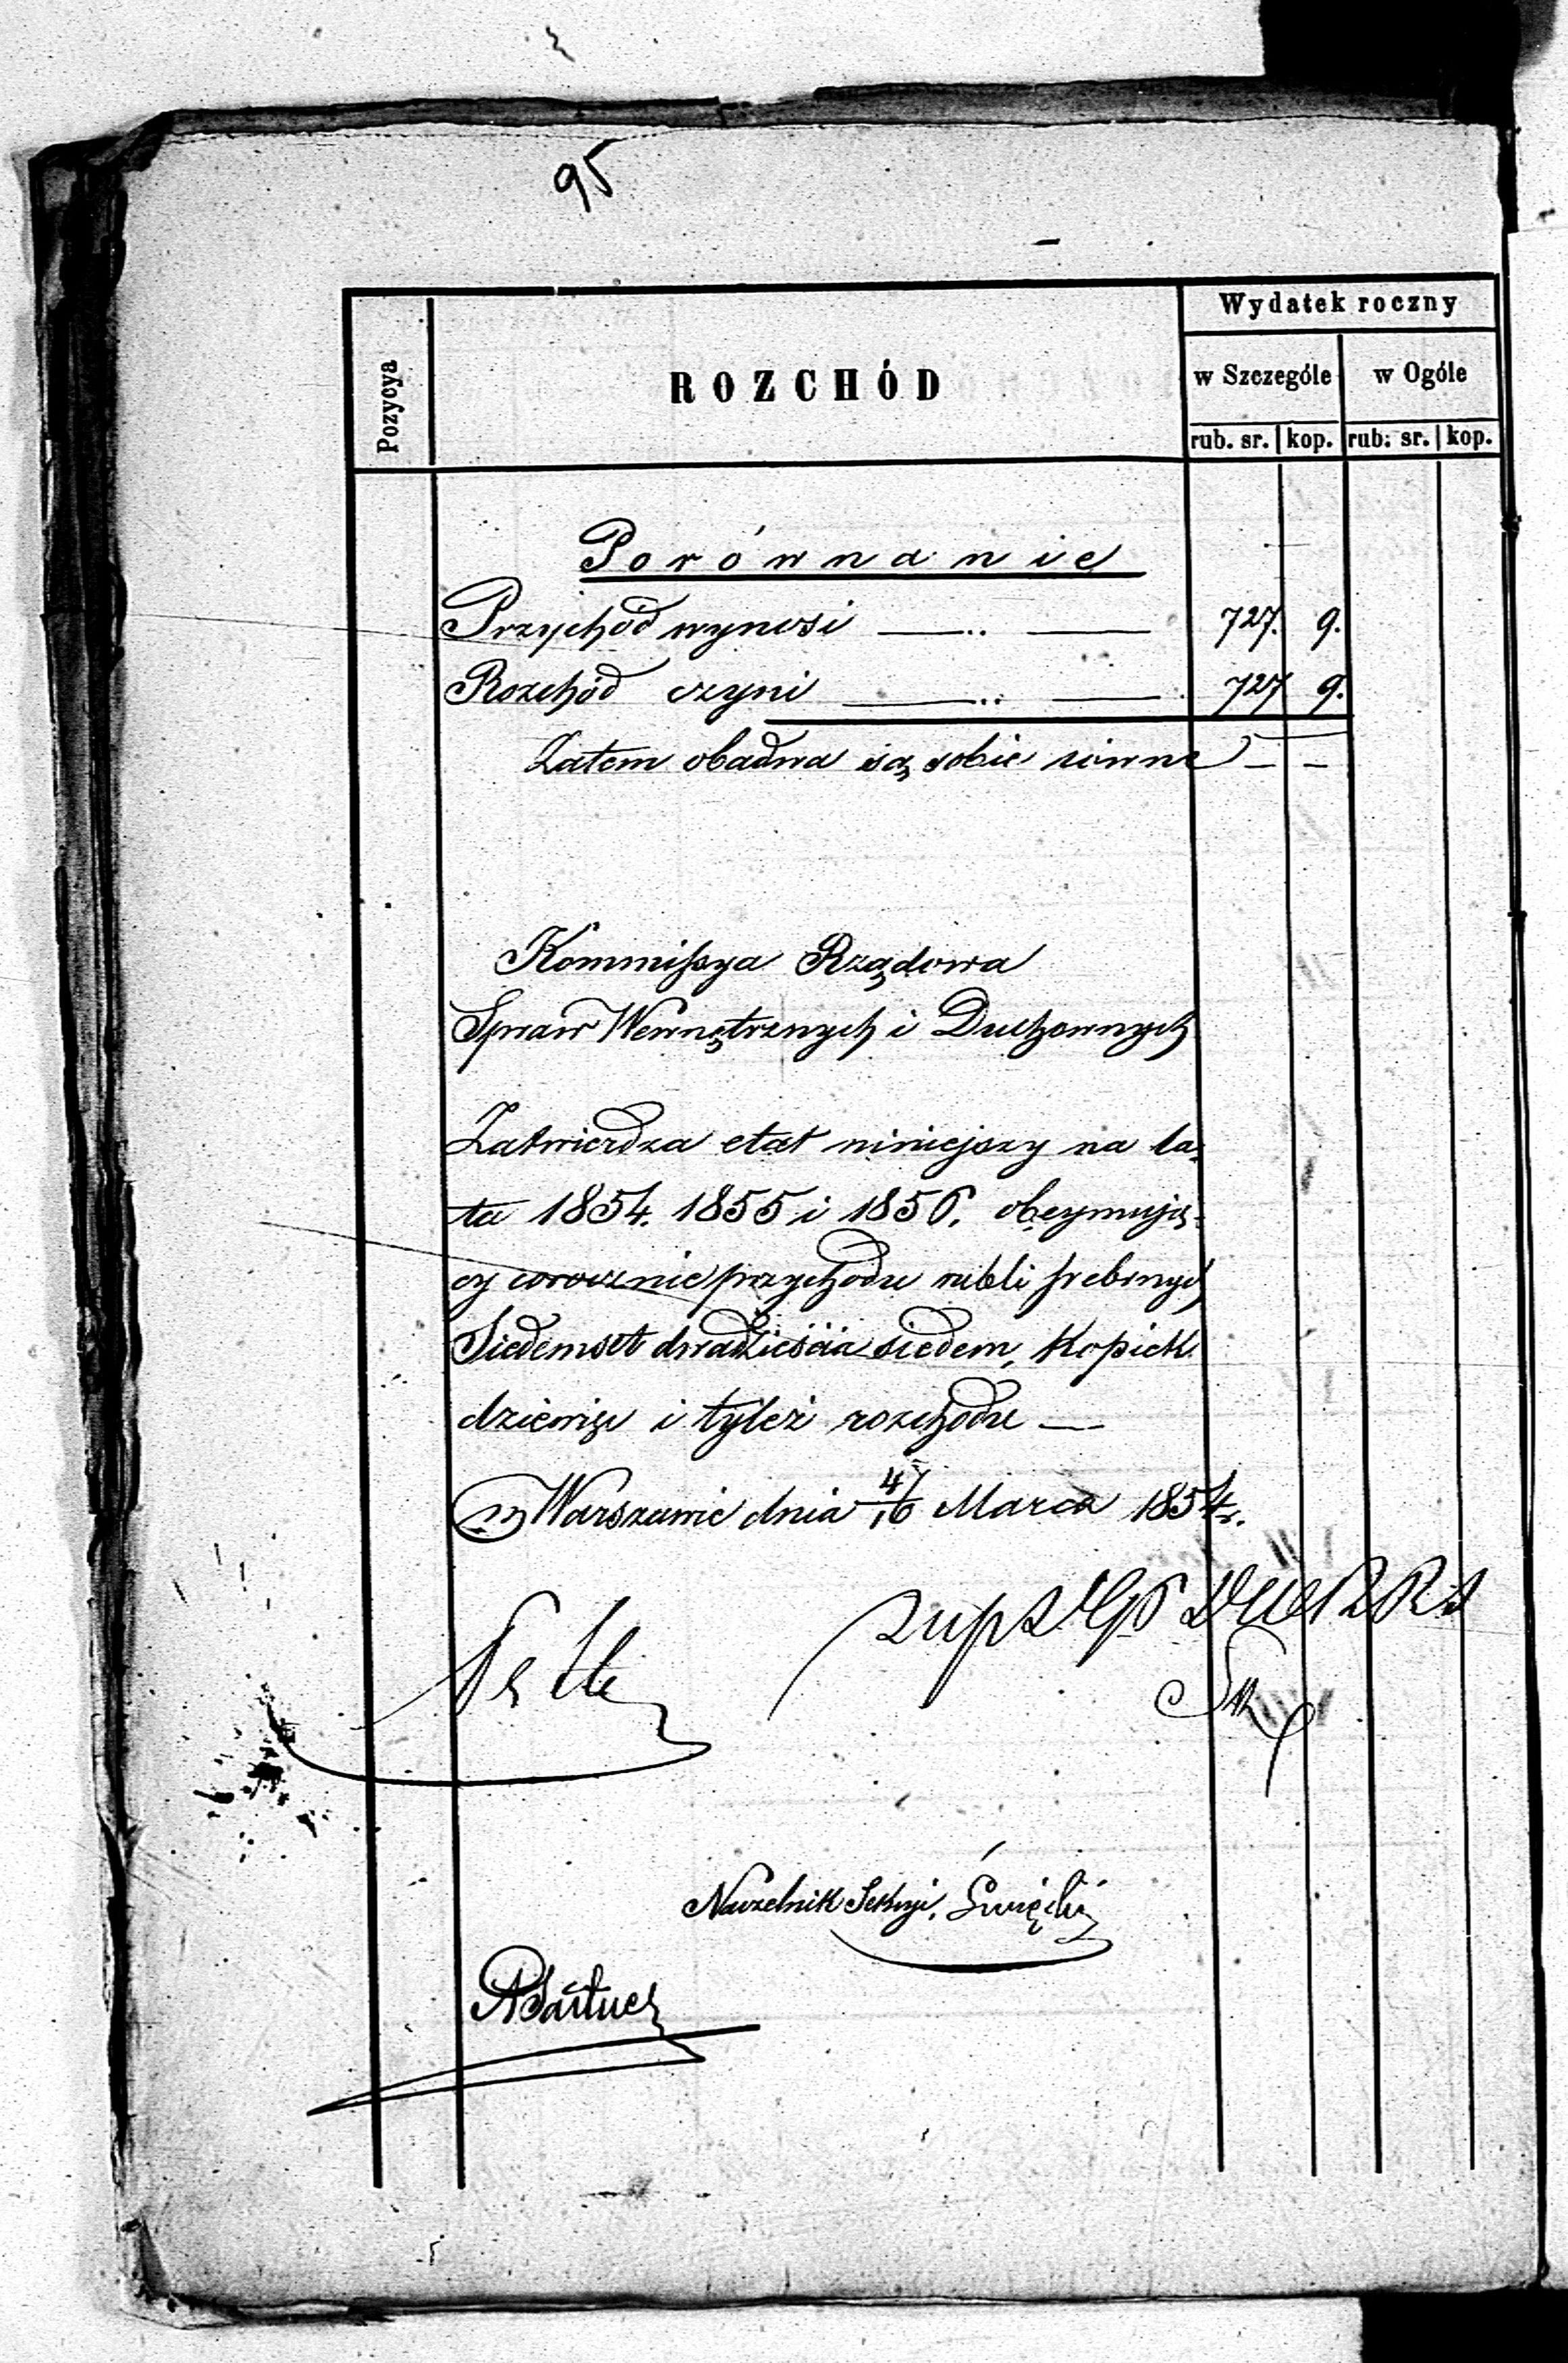 95
Pozycya
ROZCHÓD
Wydatek roczny
w Szczególe
w Ogóle
rub. sr. kop. rub. sr. kop.
Porównanie
Przychód wynosi 727. 9.
Rozchód czyni 727 9.
Zatem obadwa są sobie równe — —
Kommissya Rządowa
Spraw Wewnętrznych i Duchownych
Zatwierdza etat niniejszy na la-
ta 1854. 1855 i 1856. obejmują-
cy corocznie przychodu rubli srebrnych
Siedemset dwadzieścia siedem, kopiek
dziewięć i tyleż rozchodu —
w Warszawie dnia 4/16 Marca 1854 r.
Naczelnik Sekcyi,